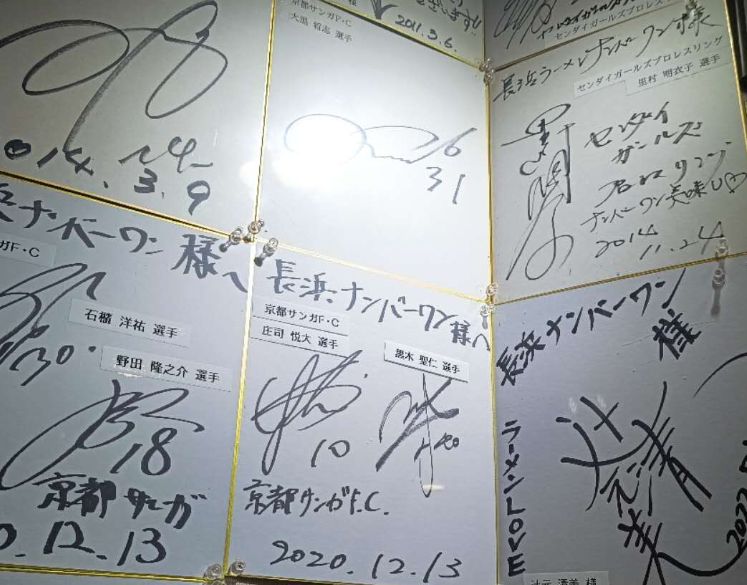 2014.3.9
京都サンガF・C
大黒 将志 選手
2011.3.6.
31
センダイガールズプロレスリング
長浜ラーメンナンバーワン様
センダイガールズプロレスリング
里村 明衣子 選手
センダイ
ガールズ
プロレスリング
ナンバーワン美味し♡
2014
11.24
浜ナンバーワン 様へ
ガF・C
石櫃 洋祐 選手
30
野田 隆之介 選手
18
京都サンガ
0.12.13
長浜ナンバーワン様へ
京都サンガF・C
庄司 悦大 選手
黒木 聖仁 選手
10
京都サンガF.C.
2020.12.13
長浜ナンバーワン様
ラーメンLOVE
辻元清美
辻元 清美 様